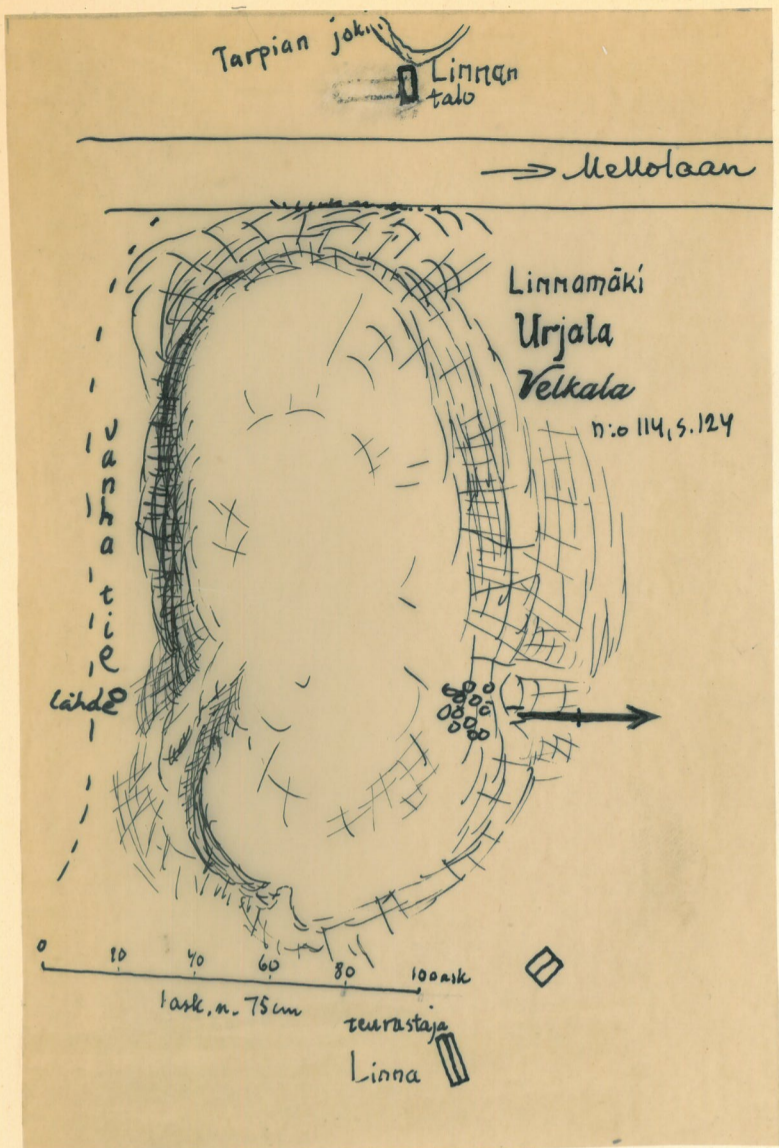 Tarpian joki
Linnan
talo
→ Mellolaan
Linnamäki
Urjala
Velkala
n:o 114, s. 124
vanha tie
Lähde
0 20 40 60 80 100 ask
1 ask. n. 75 cm
teurastaja
Linna